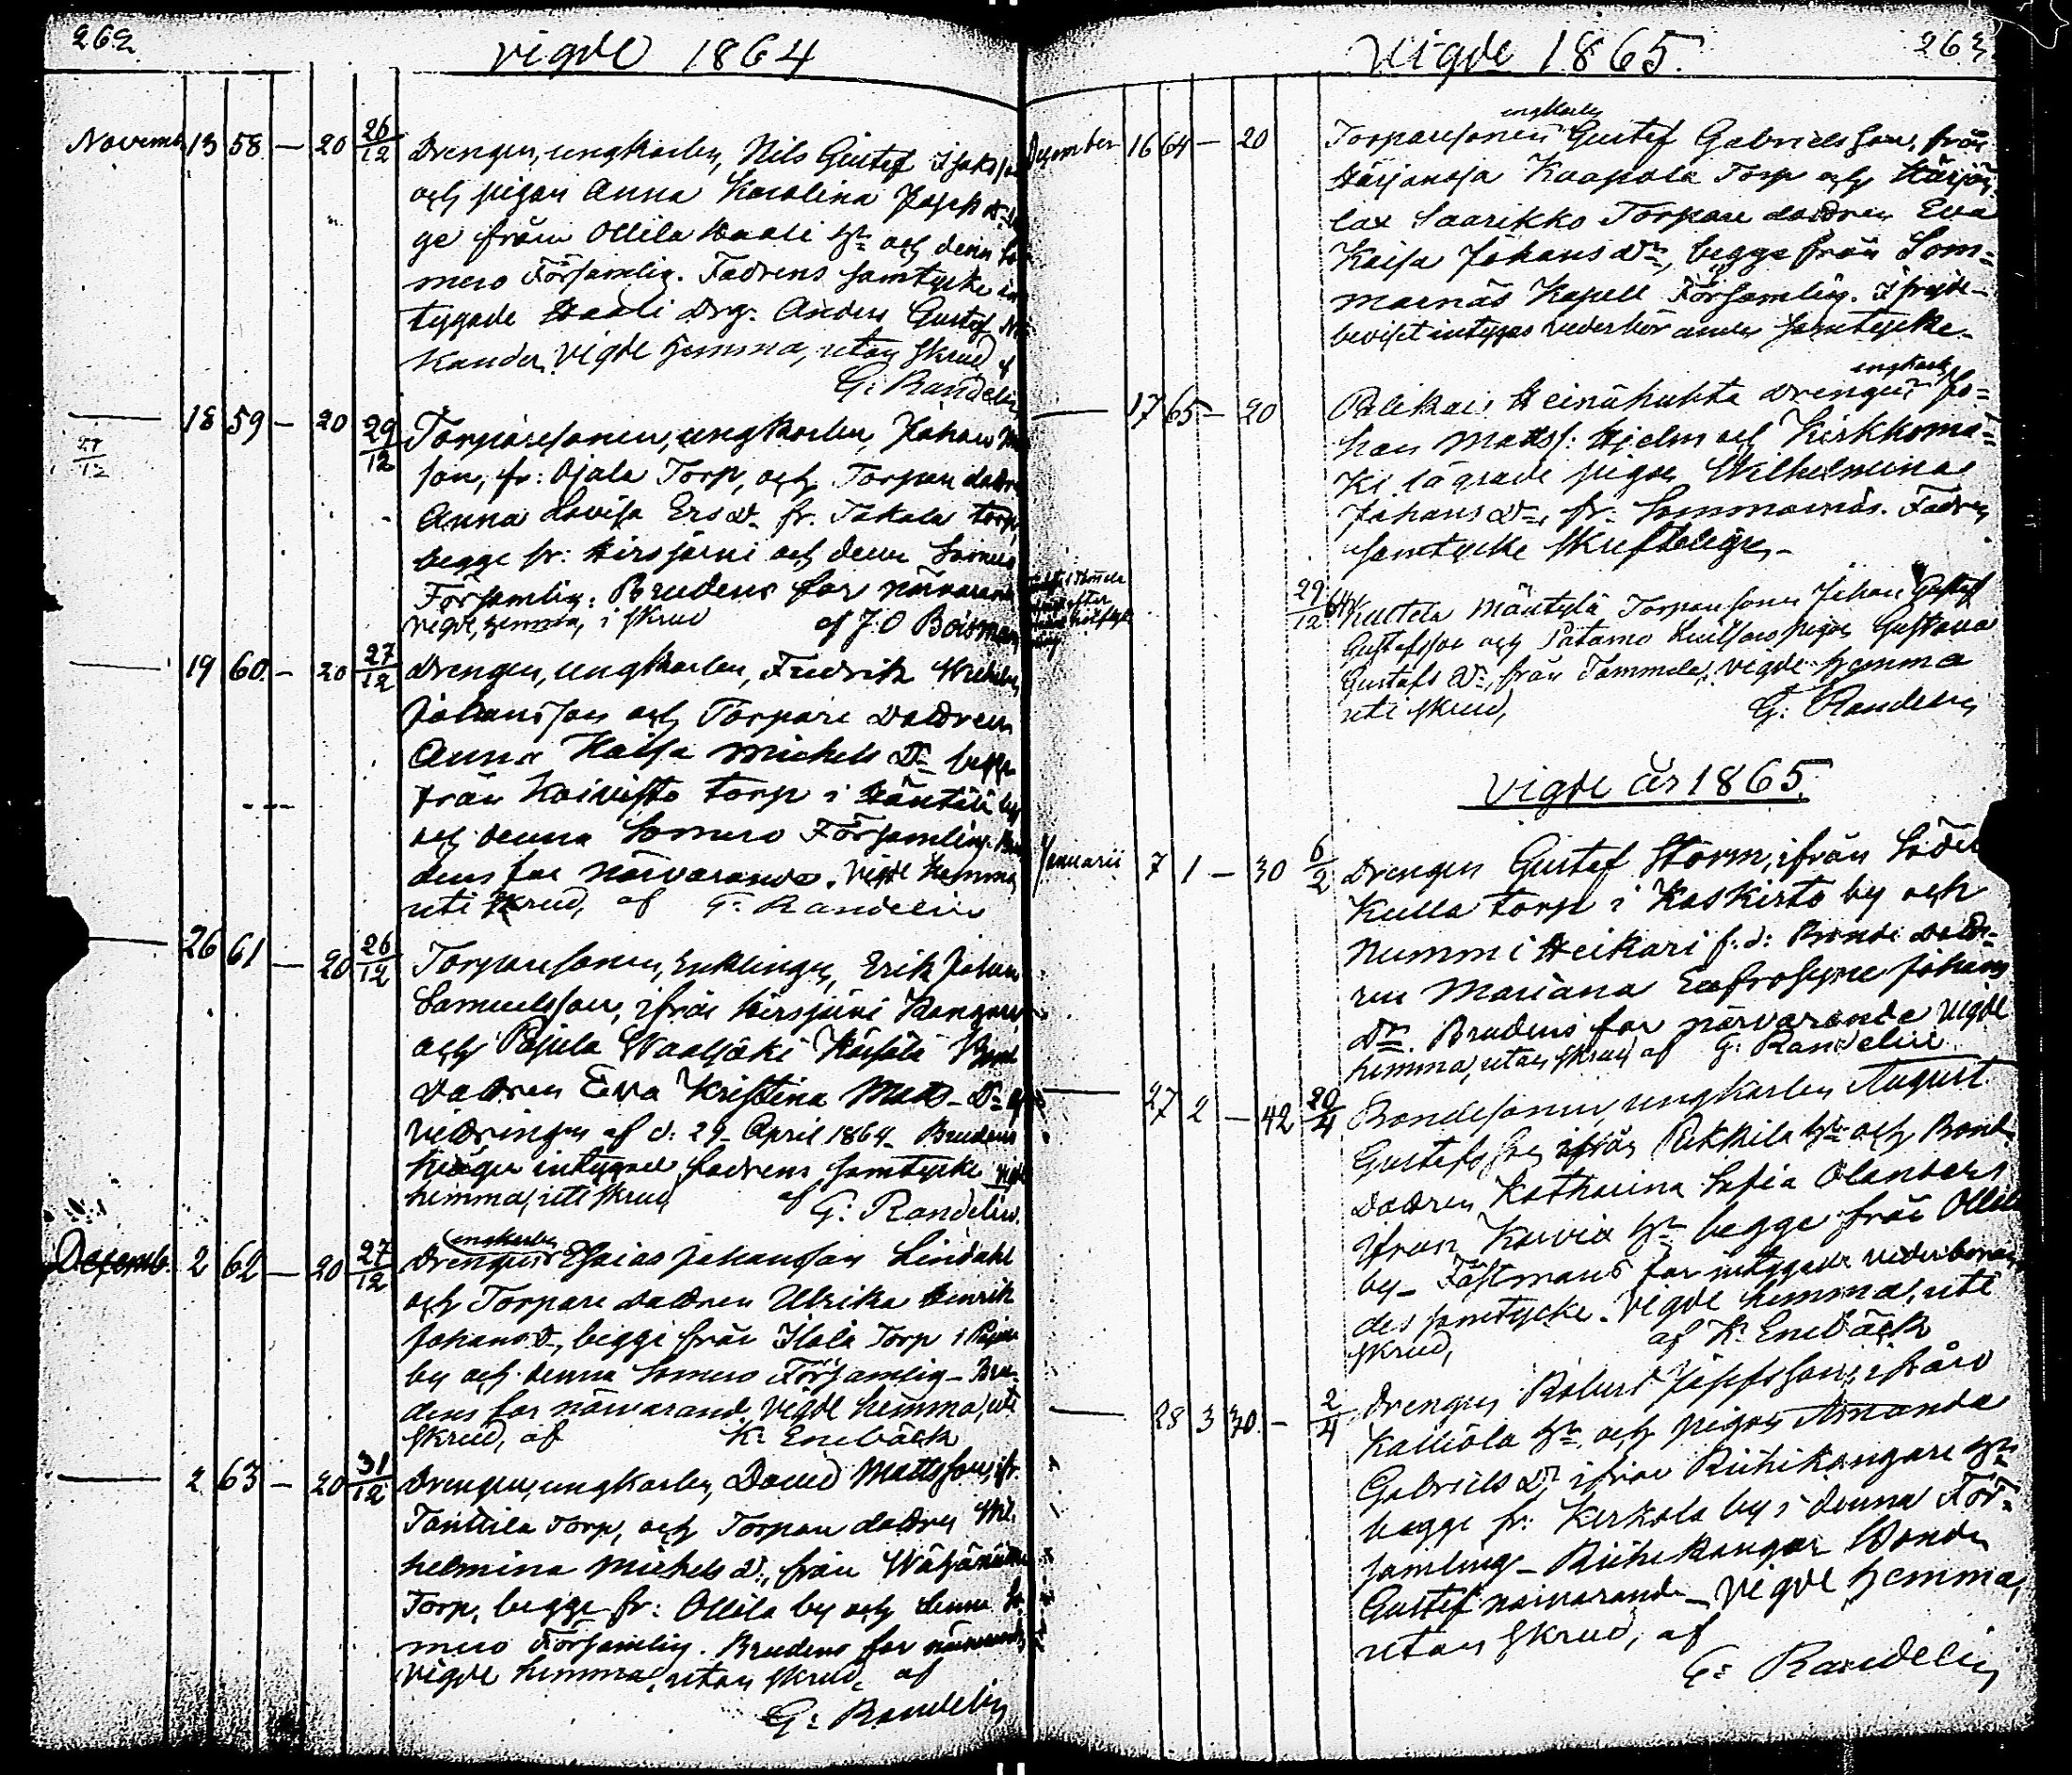 262
Vigde 1864
Novemb. 13 58 — 20 26/12 Drengen, ungkarlen, Nils Gustef Isaksson
och pigan Anna Karolina Josefs Dr
ge från Ollila Haali hn och denna So
mero Församling. Fadrens samtycke in
tygade Haali Drg. Anders Gustaf
kander. Vigde hemma, utan skrud af
G: Randelin
— 18 59 — 20 29/12 Torparesonen, ungkarlen, Johan
27/12
son, fr: Ojala Torp, och Torpare dottren
Anna Lovisa Ersdr fr. Takala torp,
begge fr: Hirsjärvi och denna Somero
Församling. Brudens far närvarande
Vigde hemma, i skrud af J.O. Boisman
— 19 60 — 20 27/12 Drengen, ungkarlen, Fredrik Wilhelm
Johansson och Torpare Dottren
Anna Kaisa Michels Dr begge
från Koivisto torp i Häntälä by
och denna Somero Församling. Bru
dens far närvarande. Vigde hemma
uti skrud, af G: Randelin
— 26 61 — 20 26/12 Torparesonen, Enklingen, Erik Johan
Samuelsson, ifrån Hirsjärvi Kangas
och Pajula Waaljoki
dottren Eva Kristina Matts Dr
vittringen af d: 29 April 1864. Brudens
intygade fadrens samtycke Vigde
hemma, uti skrud af G: Randelin.
Decemb. 2 62 — 20 27/12 Drengen ungkarlen Esaias Johansson Lindahl
och Torpare dottren Ulrika Henrik
Johans Dr, begge från Ilola Torp i Pajula
by och denna Somero Församling. Bru-
dens far närvarand. Vigde hemma, uti
skrud, af K: Enebäck
— 2 63 — 20 31/12 Drengen, ungkarlen, David Mattsson, ifr.
Tanttila Torp, och Torpare dottren Wil-
helmina Michels Dr, från
Torp, begge fr: Ollila by och denna So
mero Församling. Brudens far närvarande
Vigde hemma, utan skrud, af
G: Randelin
Vigde 1865.
263
December 16 64 — 20 Torparesonen ungkarlen Gustef Gabrielsson, från
Härjänoja Kaapola Torp och Härjän
lax Saarikko Torpare dottren Eva
Kaisa Johans Dr, begge från Som=
marnäs Kapell Församling. I frejde-
beviset intygas vederbörandes samtycke.
— 17 65 — 20 Palikais Heinähuhta drengen ungkarl Jo=
han Mattss: Hjelm och Kirkkomä=
ki lägrade pigan Wilhelmina
Johans Dr, fr: Sommarnäs. Fadren
samtycke skrifteligen.
29/12 64 Kultela Mäntylä Torparesonen Johan Gustaf
Gustafsson och Patamo pigan Gustava
Gustafs Dr, från Tammela, Vigde hemma
uti skrud, G: Randelin
Vigde år 1865.
Januarii 7 1 — 30 6/2 Drengen Gustef Storm, ifrån Söder
Kulla torp i Kaskisto by och
Nummi Heikari f.d: Bonde Dott-
ren Mariana Eufrosyne Johans
Dr. Brudens far närvarande Vigde
hemma, utan skrud af G: Randelin
— 27 2 — 42 20/4 Bondesonen, ungkarlen August
Gustafsson ifrån Pukkila hn och Bonde
Dottren Katharina Sofia Olanders
ifrån Kaivia hn begge från Ollila
by. Fästmans far intygade vederböran
des samtycke. Vigde hemma, uti
skrud, af K: Enebäck
— 28 3 30 — 2/4 Drengen Robert Josefsson, ifrån
Kalliola hn. och pigan Amanda
Gabriels Dr, ifrån Riihikangare hn
begge fr: Kerkola by i denna För-
samling. Riihikangar Bonden
Gustef närvarande. Vigde hemma,
utan skrud, af
G: Randelin